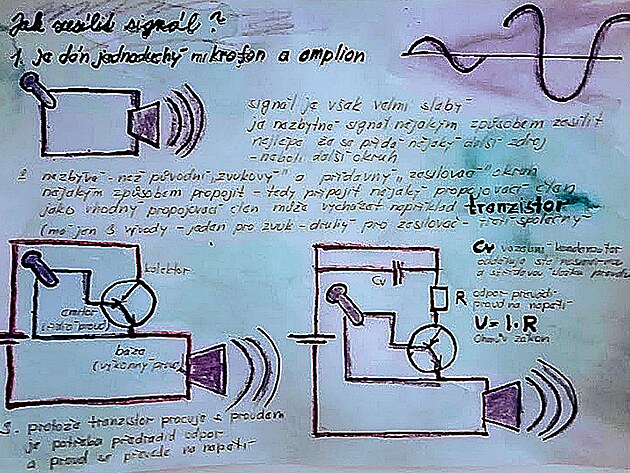 Jak zesílit signál?
1. je dán jednoduchý mikrofon a amplion
signál je však velmi slabý
je nezbytné signál nějakým způsobem zesílit
nejlépe že se přidá nějaký další zdroj
- neboli další okruh
2. nezbývá - než původní "zvukový" a přídavný "zesilovač" okruh
nějakým způsobem propojit - tedy připojit nějaký propojovací člen
jako vhodný propojovací člen může vycházet například tranzistor
(má jen 3 vývody - jeden pro zvuk - druhý pro zesilovač - třetí společný
kolektor
emitor
báza
(výkonný proud)
Cv vazební kondenzátor
a střídavou složku proudu
Cv
R odpor převádí
proud na napětí
U = I · R
Ohmův zákon
3. protože tranzistor pracuje s proudem
je potřeba předřadit odpor
a proud se převede na napětí